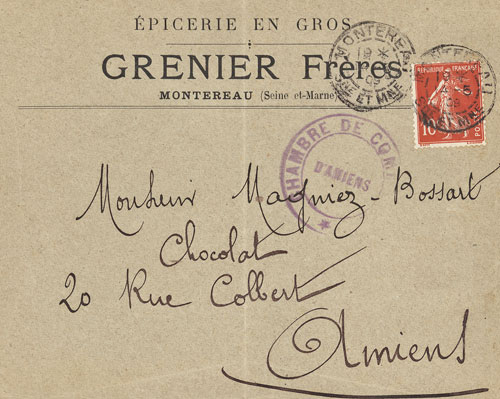 ÉPICERIE EN GROS
GRENIER Frères
MONTEREAU (Seine et-Marne)
MONTEREAU
19 *
09
ET MNE
RÉPUBLIQUE FRANÇAISE
10
POSTES
CHAMBRE DE COM
D'AMIENS
Monsieur Magniez-Bossart
Chocolat
20 Rue Colbert
Amiens